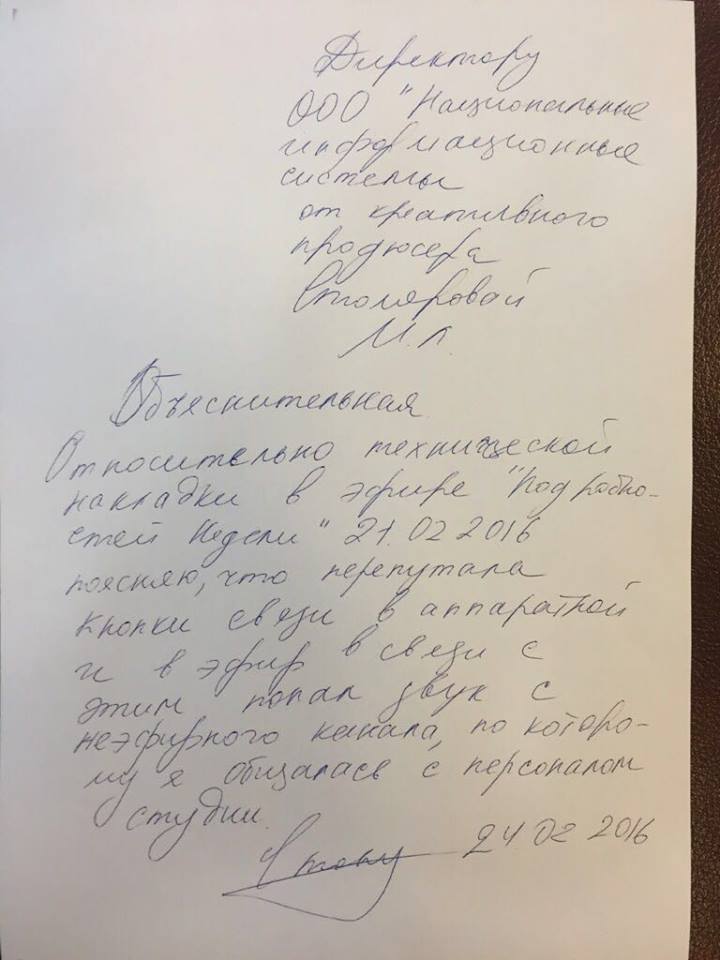 Директору
ООО "Национальные
информационные
системы
от креативного
продюсера
Столяровой
М.Л.
Объяснительная
Относительно технической
накладки в эфире "Подробно-
стей Недели" 21.02 2016
поясняю, что перепутала
кнопки связи в аппаратной
и в эфир в связи с
этим попал звук с
неэфирного канала, по которо-
му я общалась с персоналом
студии.
24 02 2016